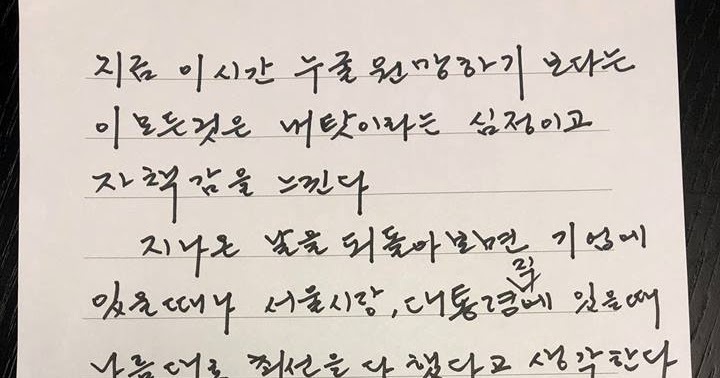 지금 이시간 누굴 원망하기 보다는
이 모든것은 내탓이라는 심정이고
자책감을 느낀다
지나온 날을 되돌아보면 기업에
있을때나 서울시장, 대통령직에 있을때
나름대로 최선을 다했다고 생각한다